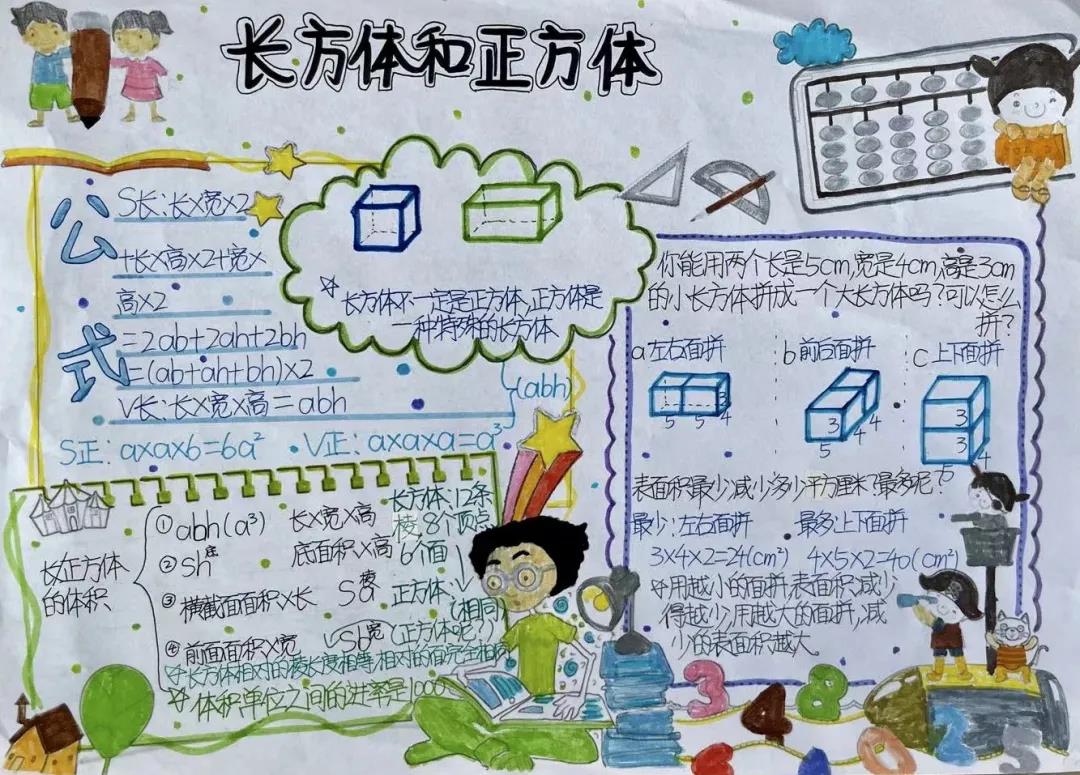 长方体和正方体
公式
S长:长×宽×2
+长×高×2+宽×
高×2
=2ab+2ah+2bh
=(ab+ah+bh)×2
V长:长×宽×高=abh
(abh)
S正:a×a×6=6a²
V正:a×a×a=a³
长方体不一定是正方体,正方体是
一种特殊的长方体
你能用两个长是5cm,宽是4cm,高是3cm
的小长方体拼成一个大长方体吗?可以怎么
拼?
a左右面拼
b前后面拼
c上下面拼
5 5 4 3
3 5 4 4
3 3 4 5
表面积最少减少多少平方厘米?最多呢?
最少:左右面拼
最多:上下面拼
3×4×2=24(cm²)
4×5×2=40(cm²)
用越小的面拼,表面积减少
得越少,用越大的面拼,减
少的表面积越大
长正方体
的体积
①abh(a³) 长×宽×高
②sh底 底面积×高
③横截面面积×长 Sa
④前面面积×宽 Sb宽(正方体呢?)
长方体:12条
棱,8个顶点
6个面
正方体:
(相同)
长方体相对的棱长度相等,相对的面完全相同
体积单位之间的进率是1000
3 4 8
0 2 5